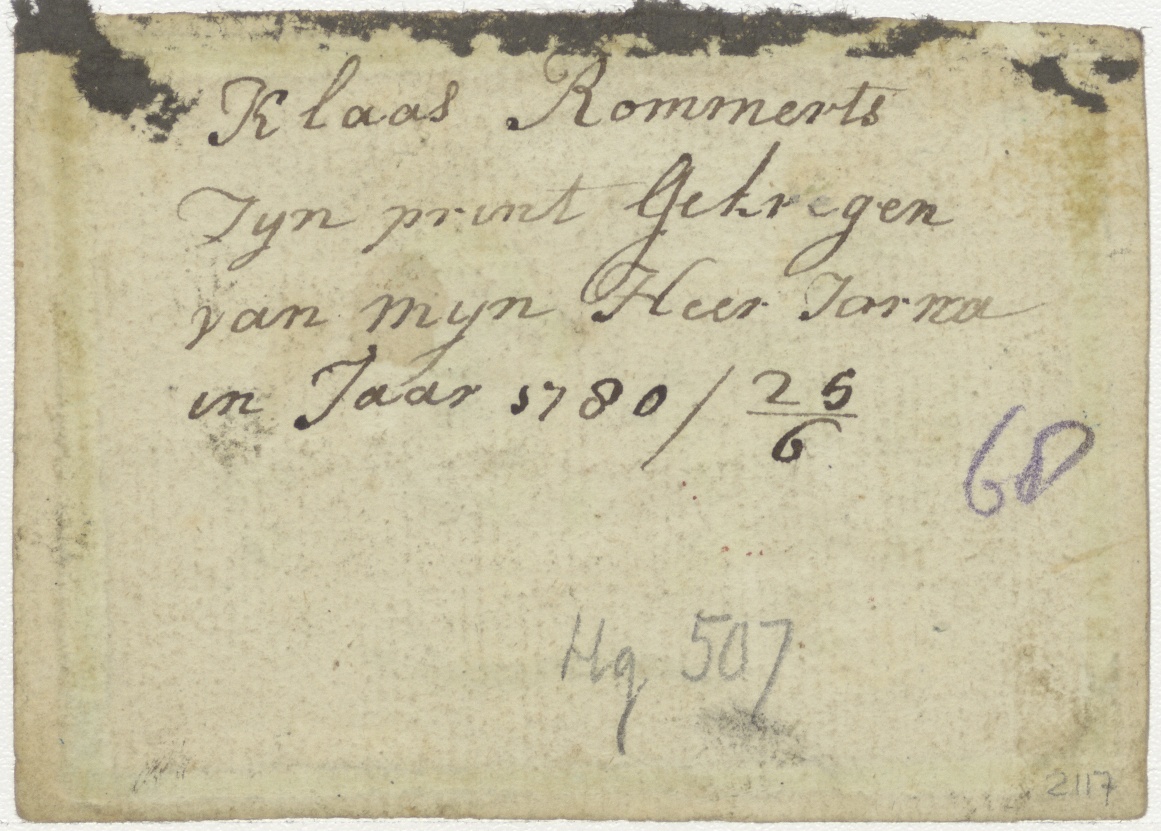 Klaas Rommerts
Zyn print Gekregen
van myn Heer Jorna
in Jaar 1780 / 25/6
68
Hq 507
2117